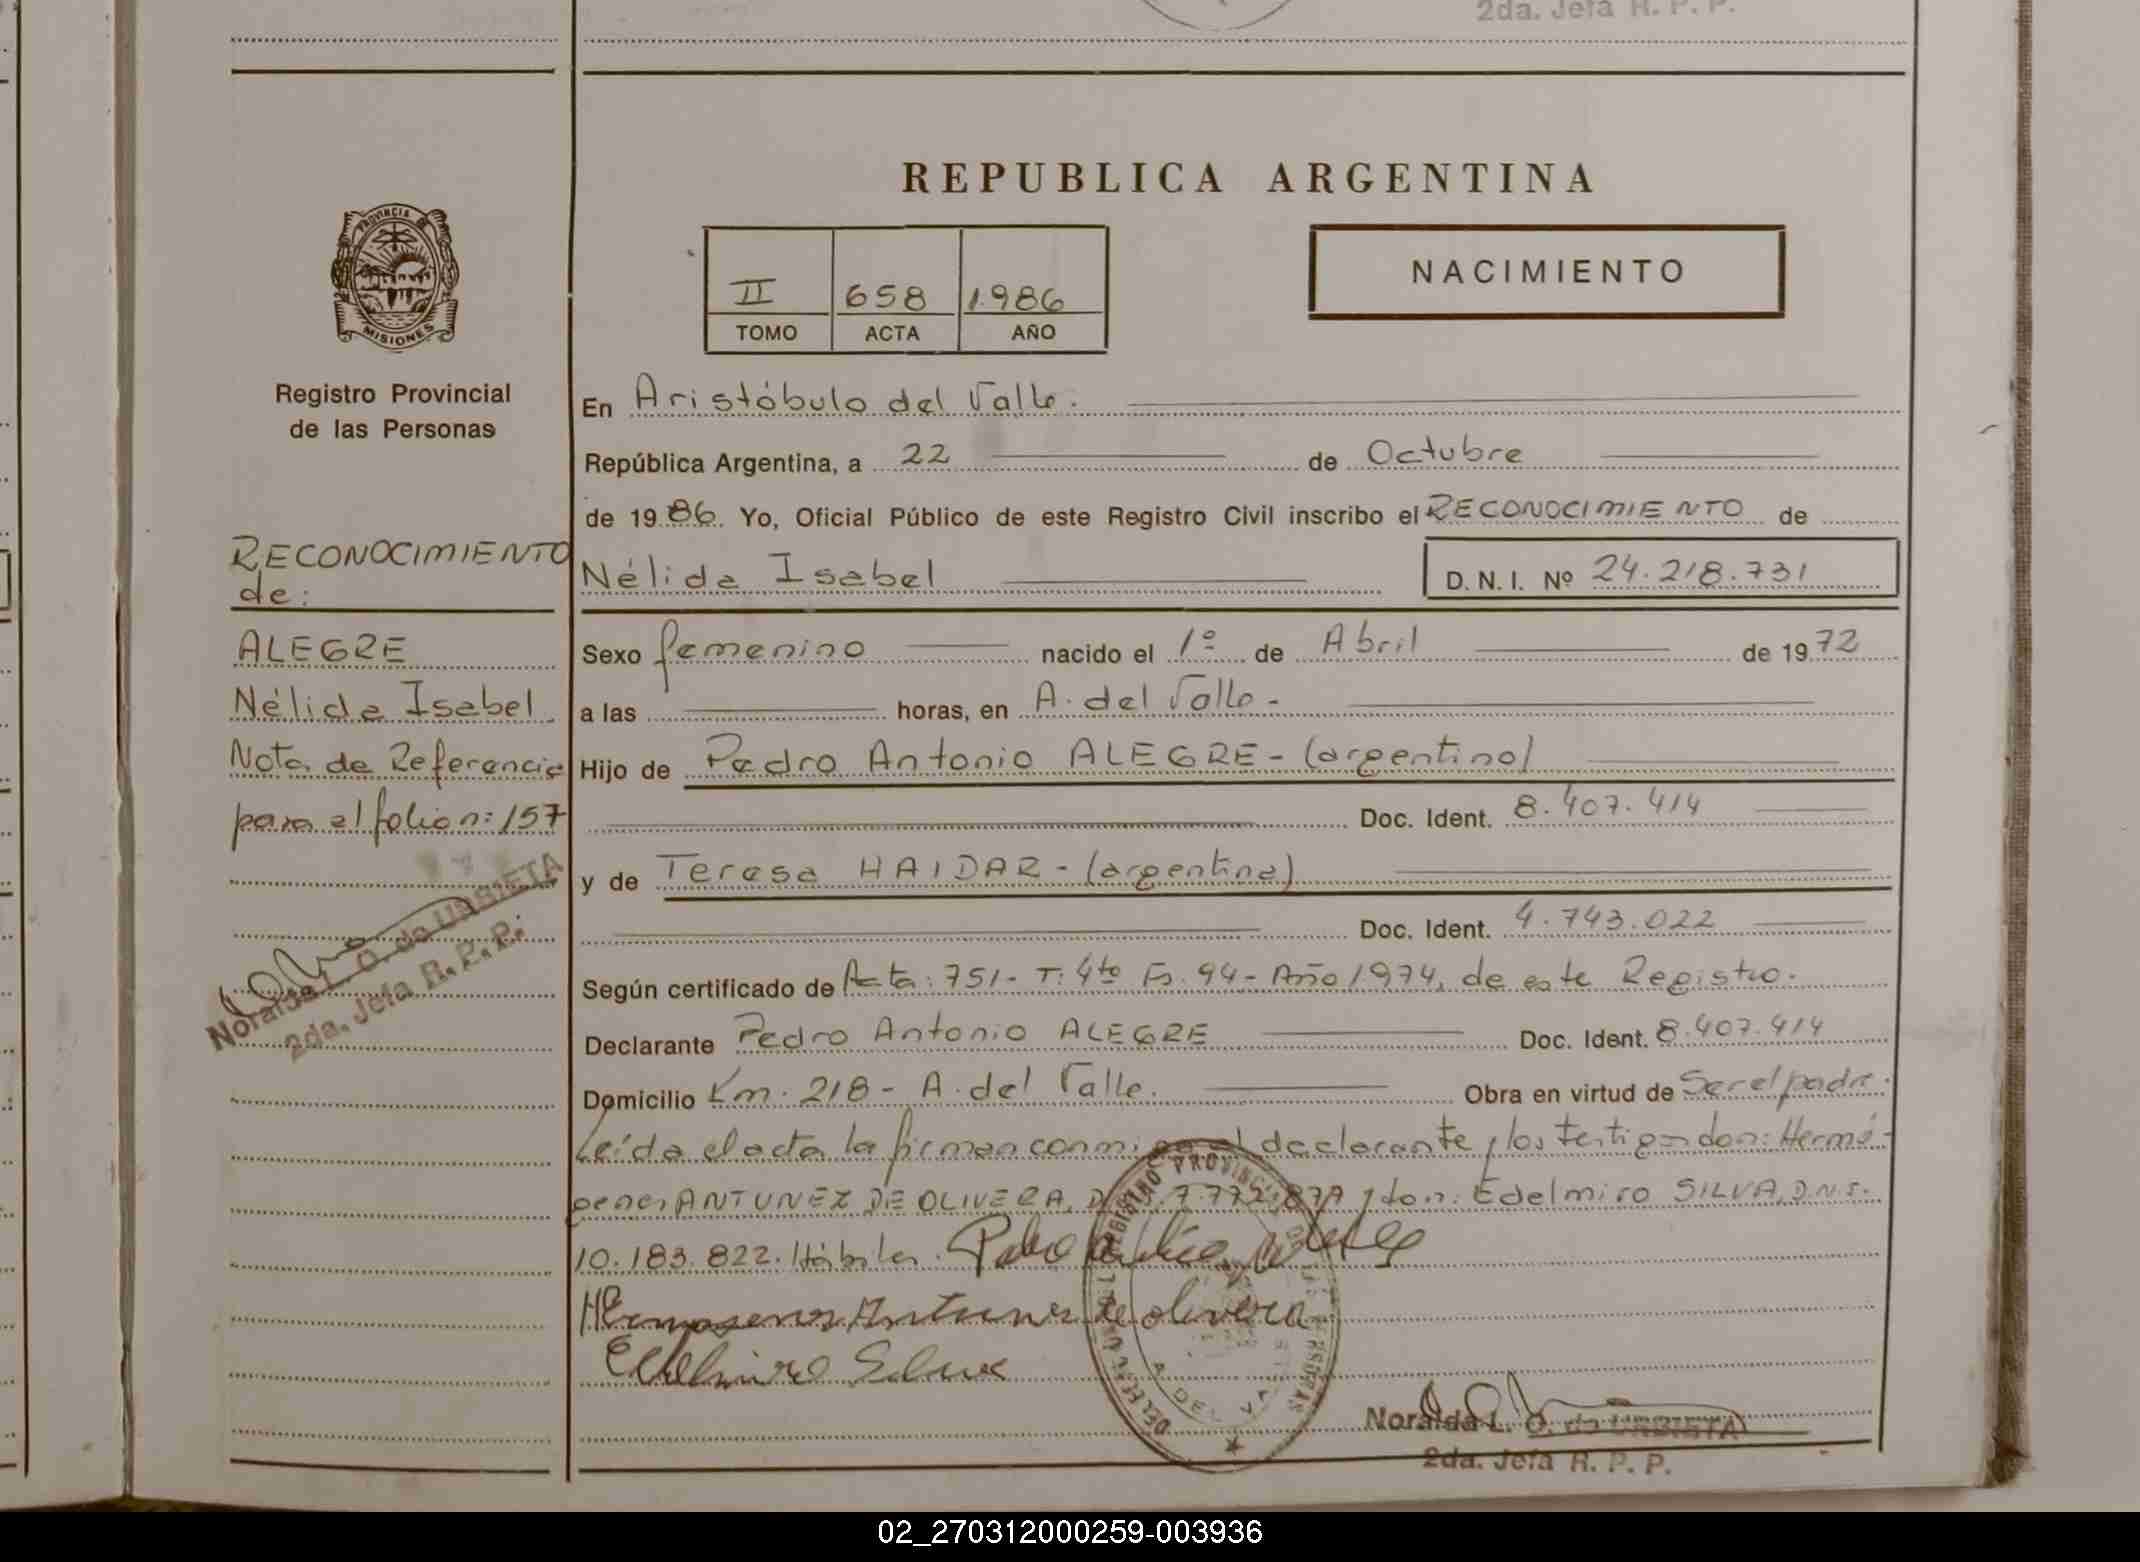 2da. Jefa R. P. P.
REPUBLICA ARGENTINA
PROVINCIA DE
MISIONES
Registro Provincial
de las Personas
II 658 1986
TOMO ACTA AÑO
NACIMIENTO
En Aristóbulo del Valle.
República Argentina, a 22 de Octubre
de 1986. Yo, Oficial Público de este Registro Civil inscribo el RECONOCIMIENTO de
Nélida Isabel D. N. I. Nº 24.218.731
RECONOCIMIENTO
de:
ALEGRE
Nélida Isabel
Nota de Referencia
para el folio n: 157
Noralda L. O. de URBIETA
2da. Jefa R. P. P.
Sexo femenino nacido el 1º de Abril de 1972
a las horas, en A. del Valle-
Hijo de Pedro Antonio ALEGRE- (argentino)
Doc. Ident. 8.407.414
y de Teresa HAIDAR- (argentina)
Doc. Ident. 4.743.022
Según certificado de Acta: 751- T: 4to Fs. 94- Año 1974, de este Registro.
Declarante Pedro Antonio ALEGRE Doc. Ident. 8.407.414
Domicilio Km. 218- A. del Valle. Obra en virtud de Ser el padre.
Leída el acta la firman conmigo el declarante y los testigos don: Hermó-
genes ANTUNEZ DE OLIVERA, D 7.772.877 y don: Edelmiro SILVA, D.N.I.
10.183.822. Hábiles.
Hermogenes Antunes de olivera
Edelmiro Silva
REGISTRO PROVINCIAL DE LAS PERSONAS
A. DEL VALLE
Noralda L. O. de URBIETA
2da. Jefa R. P. P.
02_270312000259-003936